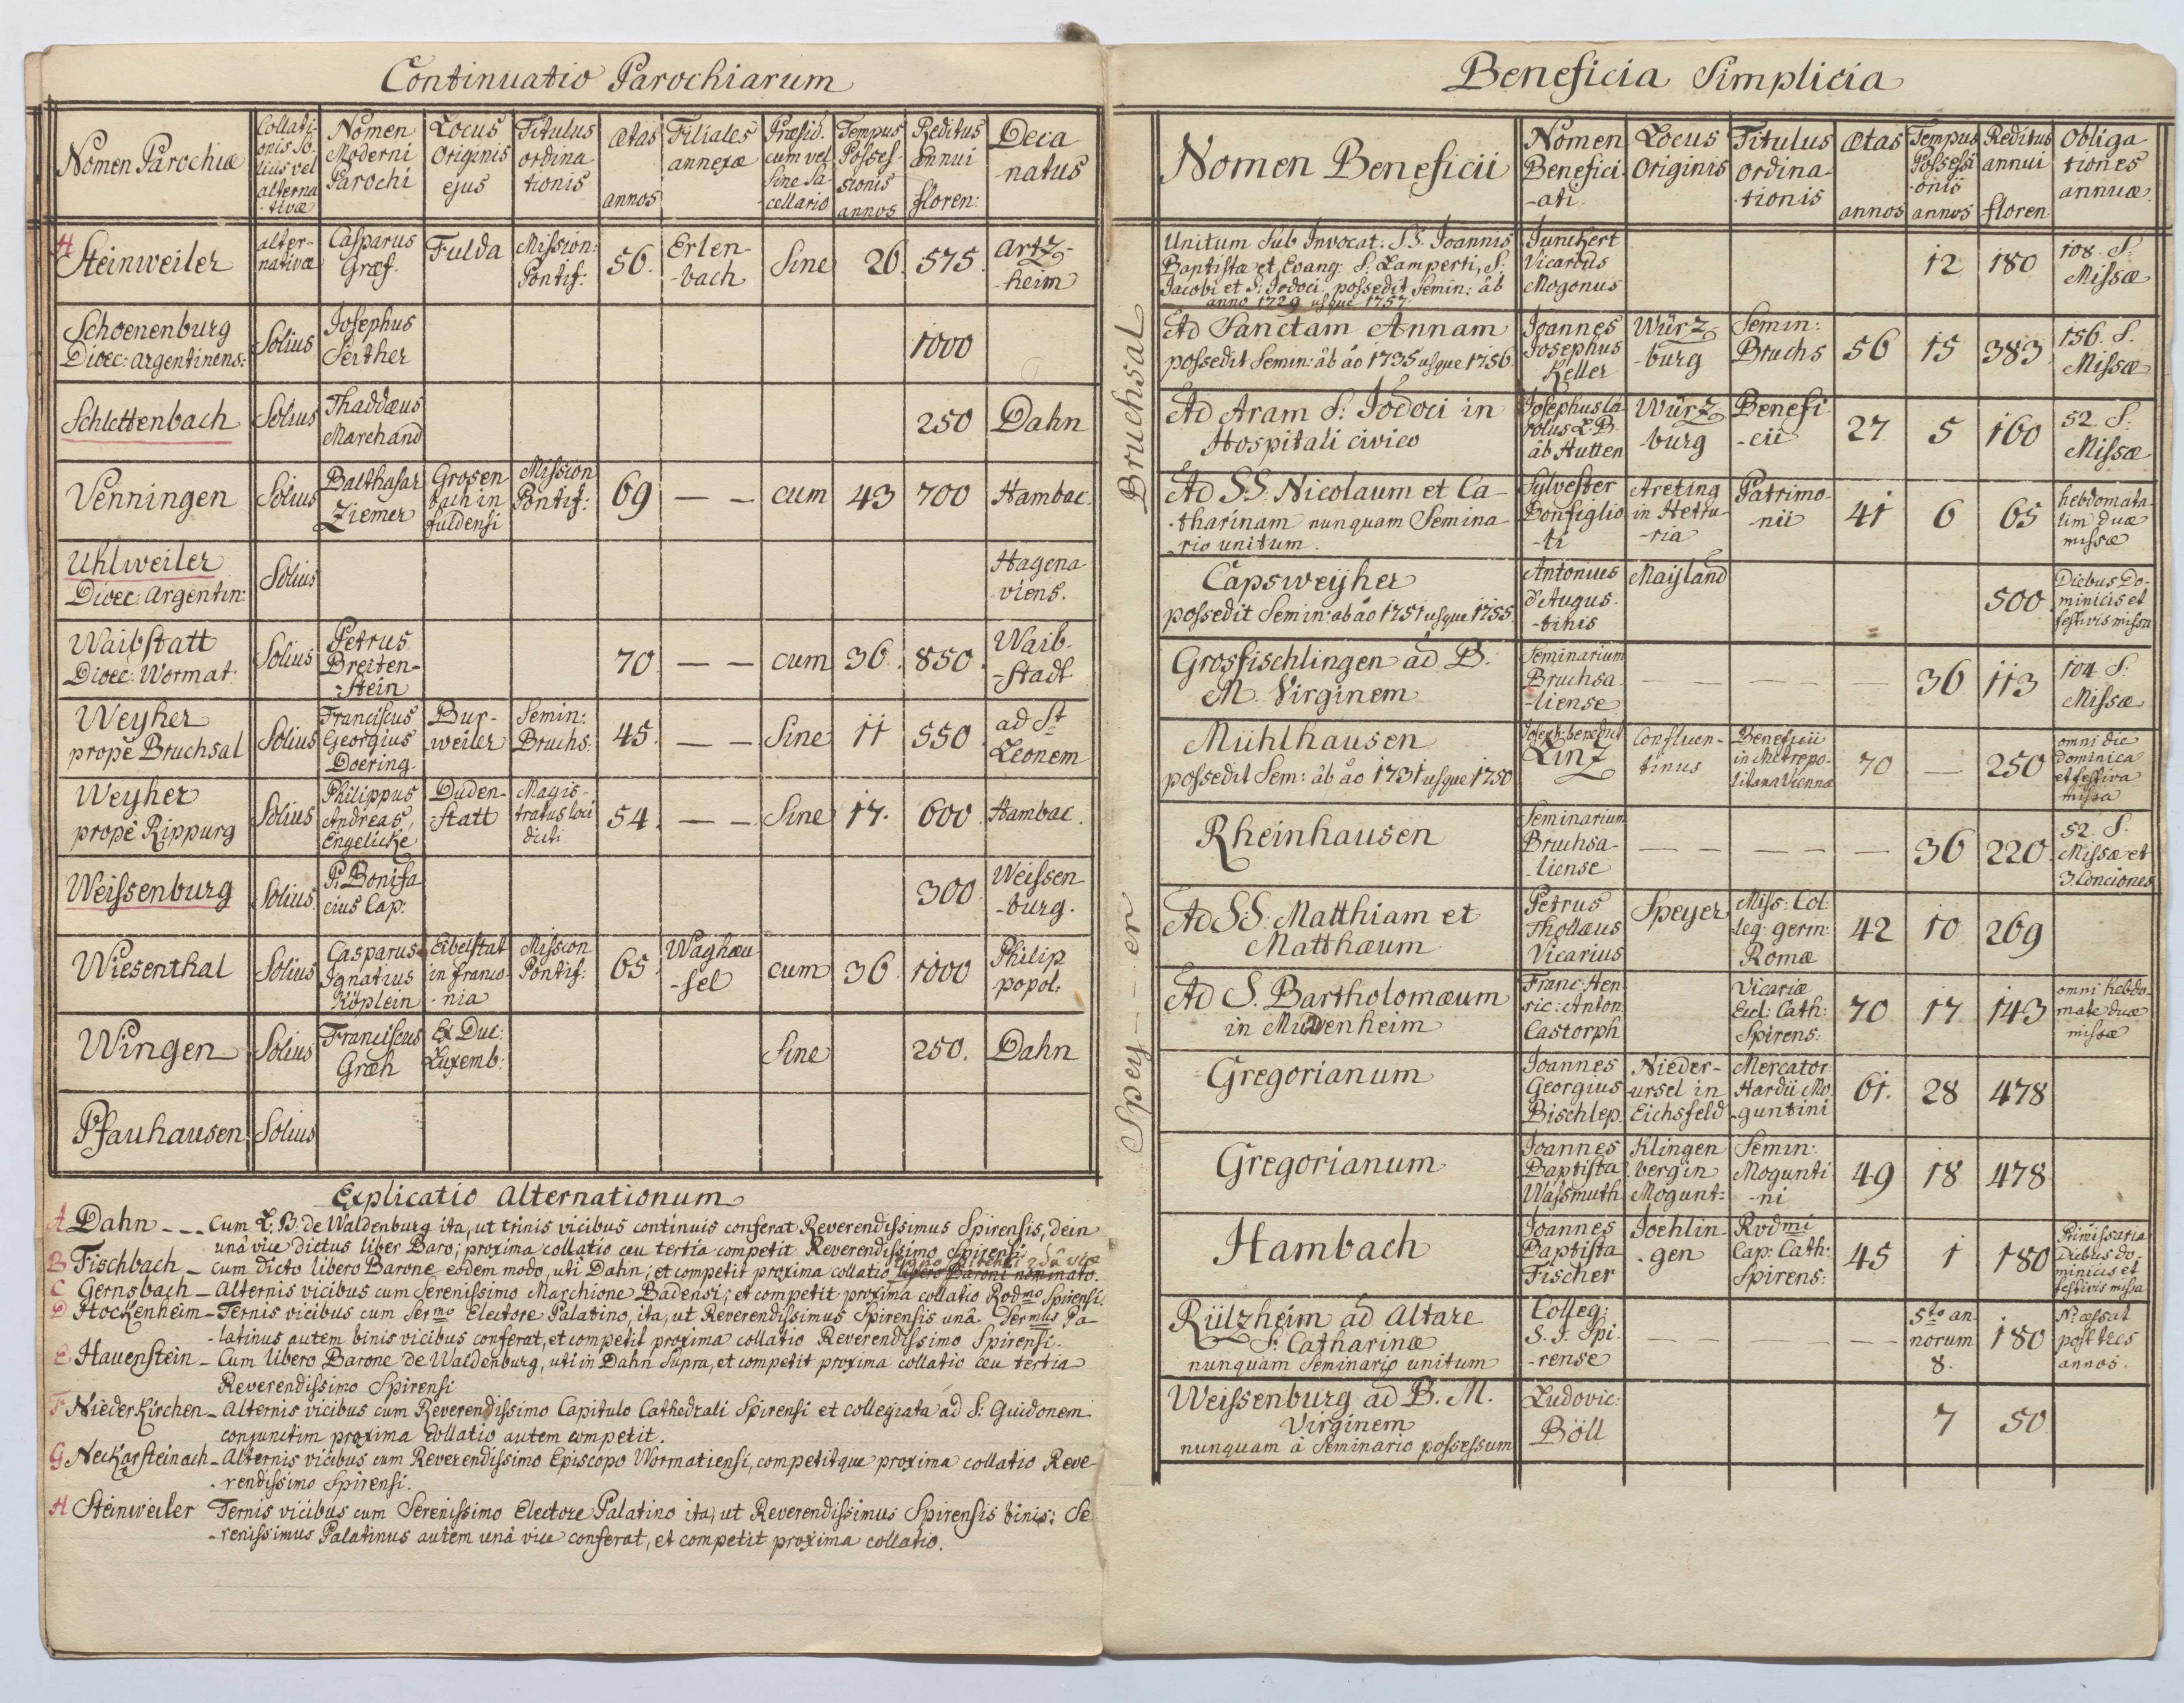 Continuatio Parochiarum
Nomen Parochiæ
Collati-
onis So-
lius vel
alterna
-tivæ
Nomen
Moderni
Parochi
Locus
Originis
ejus
Titulus
ordina
tionis
Ætas
annos
Filiales
annexæ
Præsid.
cum vel
Sine Sa-
cellario
Tempus
Posses-
sionis
annos
Reditus
annui
floren:
Deca
-natus
H
Steinweiler
alter-
nativæ
Casparus
Græf.
Fulda
Mission:
Pontif:
56.
Erlen-
-bach
Sine
26.
575.
Artz-
-heim
Schoenenburg
Dioec: Argentinens:
Solius
Josephus
Seither
1000
Schlettenbach
Solius
Thaddæus
Marchand
250
Dahn
Venningen
Solius
Balthasar
Ziemer
Grosen
bach in
fuldensi
Mission
Pontif:
69
— —
cum
43
700
Hambac.
Uhlweiler
Dioec: Argentin:
Solius
Hagena
-viens.
Waibstatt
Dioec: Wormat:
Solius
Petrus
Breiten-
-stein
70
— —
cum
36.
850.
Waib-
-stadt
Weyher
propè Bruchsal
Solius
Franciscus
Georgius
Doering
Bur-
weiler
Semin:
Bruchs:
45.
— —
Sine
11
550
ad St
Leonem
Weyher
propè Rippurg
Solius
Philippus
Andreas
Engelicke
Duden-
statt
Magis-
tratus loci
dicti
54.
— —
Sine
17.
600.
Hambac.
Weissenburg
Solius.
P. Bonifa
cius Cap:
300
Weissen
-burg.
Wiesenthal
Solius
Casparus
Ignatius
Köplein
Eibelstat
in franco-
-nia
Mission
Pontif:
65.
Waghæu
-sel
cum
36.
1000
Philip
popol:
Wingen
Solius
Franciscus
Græh
Ex Duc:
Luxemb:
Sine
250.
Dahn
Pfauhausen
Solius
Explicatio Alternationum
A Dahn - - - Cum L: B: de Waldenburg ita, ut trinis vicibus continuis conferat Reverendissimus Spirensis, dein
unâ vice dictus liber Baro; proxima collatio ceu tertia competit Reverendissimo Spirensi
B Fischbach - cum dicto libero Barone eodem modo, uti Dahn; et competit proxima collatio libero Baroni nominato.
C Gernsbach - Alternis vicibus cum Serenissimo Marchione Badensi; et competit proxima collatio Rodmo Spirensi.
D Hockenheim - Ternis vicibus cum Sermo Electore Palatino, ita, ut Reverendissimus Spirensis unâ, Sermus Pa-
-latinus autem binis vicibus conferat, et competit proxima collatio Reverendissimo Spirensi.
E. Hauenstein - Cum libero Barone de Waldenburg, uti in Dahn Supra, et competit proxima collatio ceu tertia
Reverendissimo Spirensi
F Niederkirchen - Alternis vicibus cum Reverendissimo Capitulo Cathedrali Spirensi et collegiata ad S: Guidonem
conjunctim proxima collatio autem competit.
G Neckarsteinach - Alternis vicibus cum Reverendissimo Episcopo Wormatiensi, competitque proxima collatio Reve-
-rendissimo Spirensi.
H Steinweiler Ternis vicibus cum Serenissimo Electore Palatino ita, ut Reverendissimus Spirensis binis; Se
-renissimus Palatinus autem unâ vice conferat, et competit proxima collatio.
Beneficia Simplicia
Nomen Beneficii
Nomen
Benefici
-ati
Locus
Originis
Titulus
ordina-
-tionis
Ætas
annos
Tempus
Possessi
-onis
annos
Reditus
annui
floren
Obliga
tiones
annuæ.
Bruchsal
Unitum Sub Invocat: S.S. Joannis
Baptistæ et Evang: S: Lamperti, S.
Jacobi et S: Jodoci. possedit Semin: âb
anno 1729 usque 1757
Junckert
Vicarius
Mogonus
12
180
108. S:
Missæ
Ad Sanctam Annam
possedit Semin: âb ao 1735 usque 1756
Joannes
Josephus
Keller
Würz-
-burg
Semin:
Bruchs
56
15
383.
156. S.
Missæ
Ad Aram S: Jodoci in
Hospitali civico
Josephus Ca
rolus L. B.
âb Hutten
Würz-
-burg
Benefi
-cii
27
5
160
52. S:
Missæ
Ad S.S. Nicolaum et Ca-
-tharinam nunquam Semina-
rio unitum.
Sylvester
Bonfiglio
-ti
Aretina
in Hetru-
-ria
Patrimo-
-nii
41
6
65
hebdomata
tim duæ
missæ
Capsweyher
possedit Semin: ab ao 1751 usque 1755
Antonius
d'Augus-
-tinis
Mayland
500
Diebus Do-
minicis et
festivis missa
Grosfischlingen ad B.
M. Virginem
Seminarium
Bruchsa-
-liense
— — — — —
36
113
104 S:
Missæ
Mühlhausen
possedit Sem: âb ao 1731 usque 1750
Joseph: benedict
Linz
Confluen-
tinus
Beneficii
in Metropo-
litana Viennæ
70
—
250
omni die
dominica
et festiva
missa
Rheinhausen
Seminarium
Bruchsa-
-liense
— — — — —
36
220
52. S:
Missæ et
3 Conciones
Spey - - er
Ad SS: Matthiam et
Matthæum
Petrus
Thollæus
Vicarius
Speyer
Miss: Col
leg: germ:
Romæ
42
10
269
Ad S. Bartholomæum
in Mudenheim
Franc: Hen
ric: Anton
Castorph
Vicariæ
Eccl: Cath:
Spirens:
70
17
143
omni hebdo-
made duæ
missæ
Gregorianum
Joannes
Georgius
Bischlep.
Nieder-
ursel in
Eichsfeld
Mercator
Hardii Mo
-guntini
61.
28
478
Gregorianum
Joannes
Baptista
Wassmuth
Klingen
berg in
Mogunt:
Semin:
Mogunti
-ni
49
18
478
Hambach
Joannes
Baptista
Fischer
Joehlin-
-gen
Rvdmi
Cap: Cath:
Spirens:
45
1
180
Primissaria
Diebus do-
minicis et
festivis missa
Rülzheim ad Altare
S: Catharinæ
nunquam Seminario unitum
Colleg:
S. J. Spi-
-rense
— — — — —
5to an
norum
8.
180
post tres
annos.
Weissenburg ad B. M.
Virginem
nunquam à Seminario possessum
Ludovic:
Böll
7
50